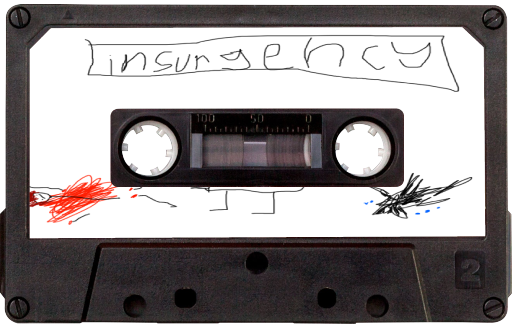 insurgency
100 50 0
2